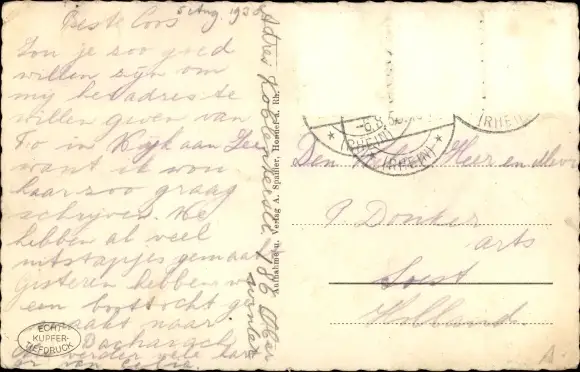 5 Aug. 1936
Beste Coos
Zou je zoo goed
willen zijn om
mij het adres te
willen geven van
To in Wijk aan Zee
want ik wou
haar zoo graag
schrijven. We
hebben al veel
uitstapjes gemaakt
gisteren hebben we
een boottocht ge
maakt naar
Bacharach
verder vele
Adres Koblenzerstr 186 Ober
winter
Aufnahme u. Verlag A. Spahler, Honnef a. Rh.
ECHT
KUPFER-
TIEFDRUCK
-6.8.36
(RHEIN)
(RHEIN)
(RHEIN)
Den Heer en Mevr
P. Donker
arts
Soest
Holland.